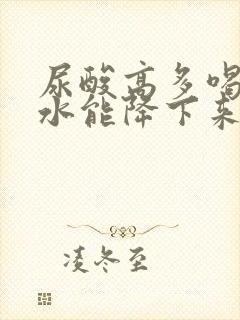 尿酸高多喝
水能降下来
凌冬至